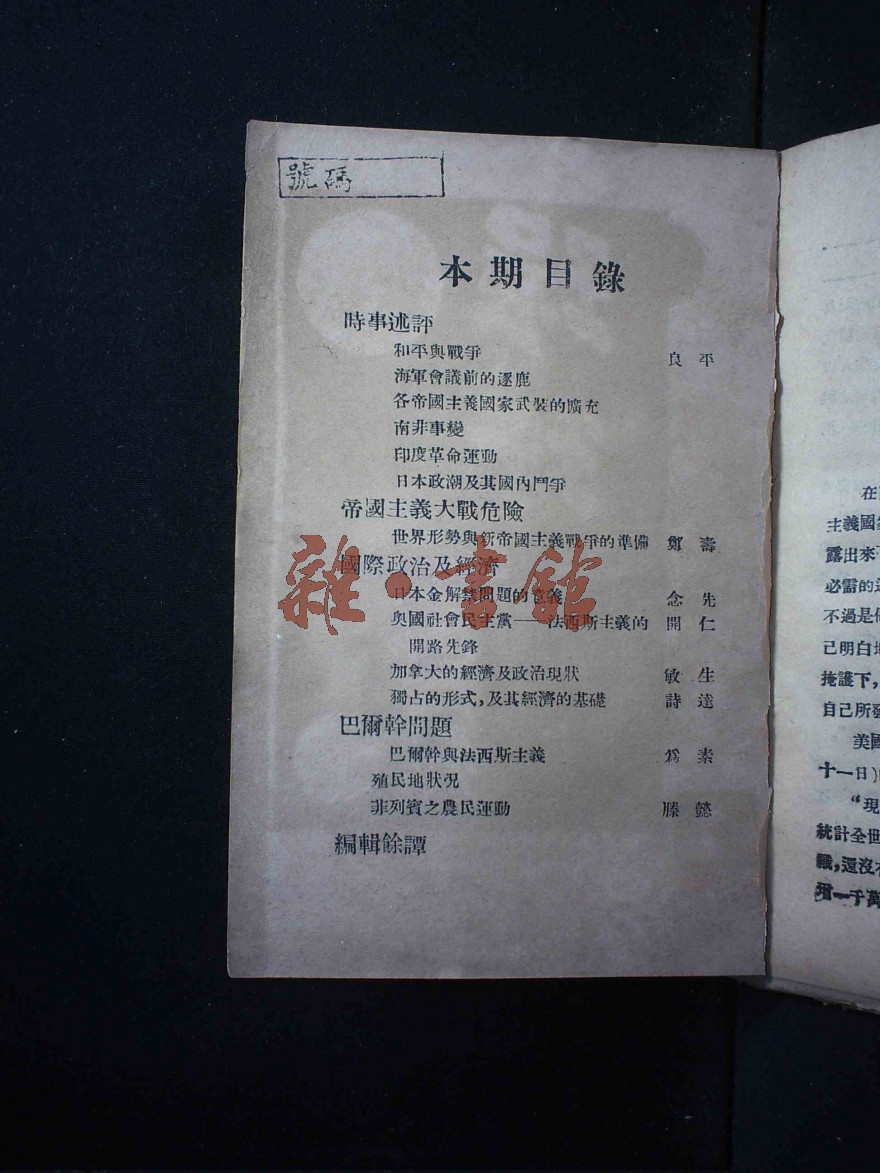 號碼
本期目錄
時事述評
和平與戰爭 良平
海軍會議前的逐鹿
各帝國主義國家武裝的擴充
南非事變
印度革命運動
日本政潮及其國內鬥爭
帝國主義大戰危險
世界形勢與新帝國主義戰爭的準備 鄭壽
國際政治及經濟
日本金解禁問題的意義 念先
奧國社會民主黨——法西斯主義的 開仁
開路先鋒
加拿大的經濟及政治現狀 敏生
獨占的形式,及其經濟的基礎 詩達
巴爾幹問題
巴爾幹與法西斯主義 爲素
殖民地狀况
菲列賓之農民運動 滕懿
編輯餘譚
雜·書館
在
主義國
露出來
必需的
不過是
己明白
掩護下,
自己所
美國
十一日)
“現
統計全世
織,還沒
增一千萬